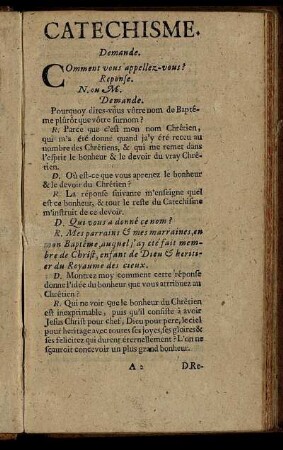 CATECHISME.
Demande.
COmment vous appellez-vous?
Reponse.
N. ou M.
Demande.
Pourquoy dites-vous vôtre nom de Baptê-
me plûtôt que vôtre surnom?
R. Parce que c'est mon nom Chrêtien,
qui m'a été donné quand j'y été receu au
nombre des Chrêtiens, & qui me remet dans
l'esprit le bonheur & le devoir du vray Chrê-
tien.
D. Où est-ce que vous aprenez le bonheur
& le devoir du Chrêtien?
R. La réponse suivante m'enseigne quel
est ce bonheur, & tout le reste du Catechisme
m'instruit de ce devoir.
D. Qui vous a donné ce nom?
R. Mes parrains & mes marraines, en
mon Baptême, auquel j'ay été fait mem-
bre de Christ, enfant de Dieu & heriti-
er du Royaume des cieux.
D. Montrez moy comment cette réponse
donne l'idée du bonheur que vous attribuez au
Chrêtien?
R. Qui ne voir que le bonheur du Chrêtien
est inexprimable, puis qu'il consiste à avoir
Jesus Christ pour chef, Dieu pour pere, le ciel
pour heritage avec toutes ses joyes, ses gloires &
ses felicitez qui durent éternellement? L'on ne
sçauroit concevoir un plus grand bonheur.
A 2 D. Re-